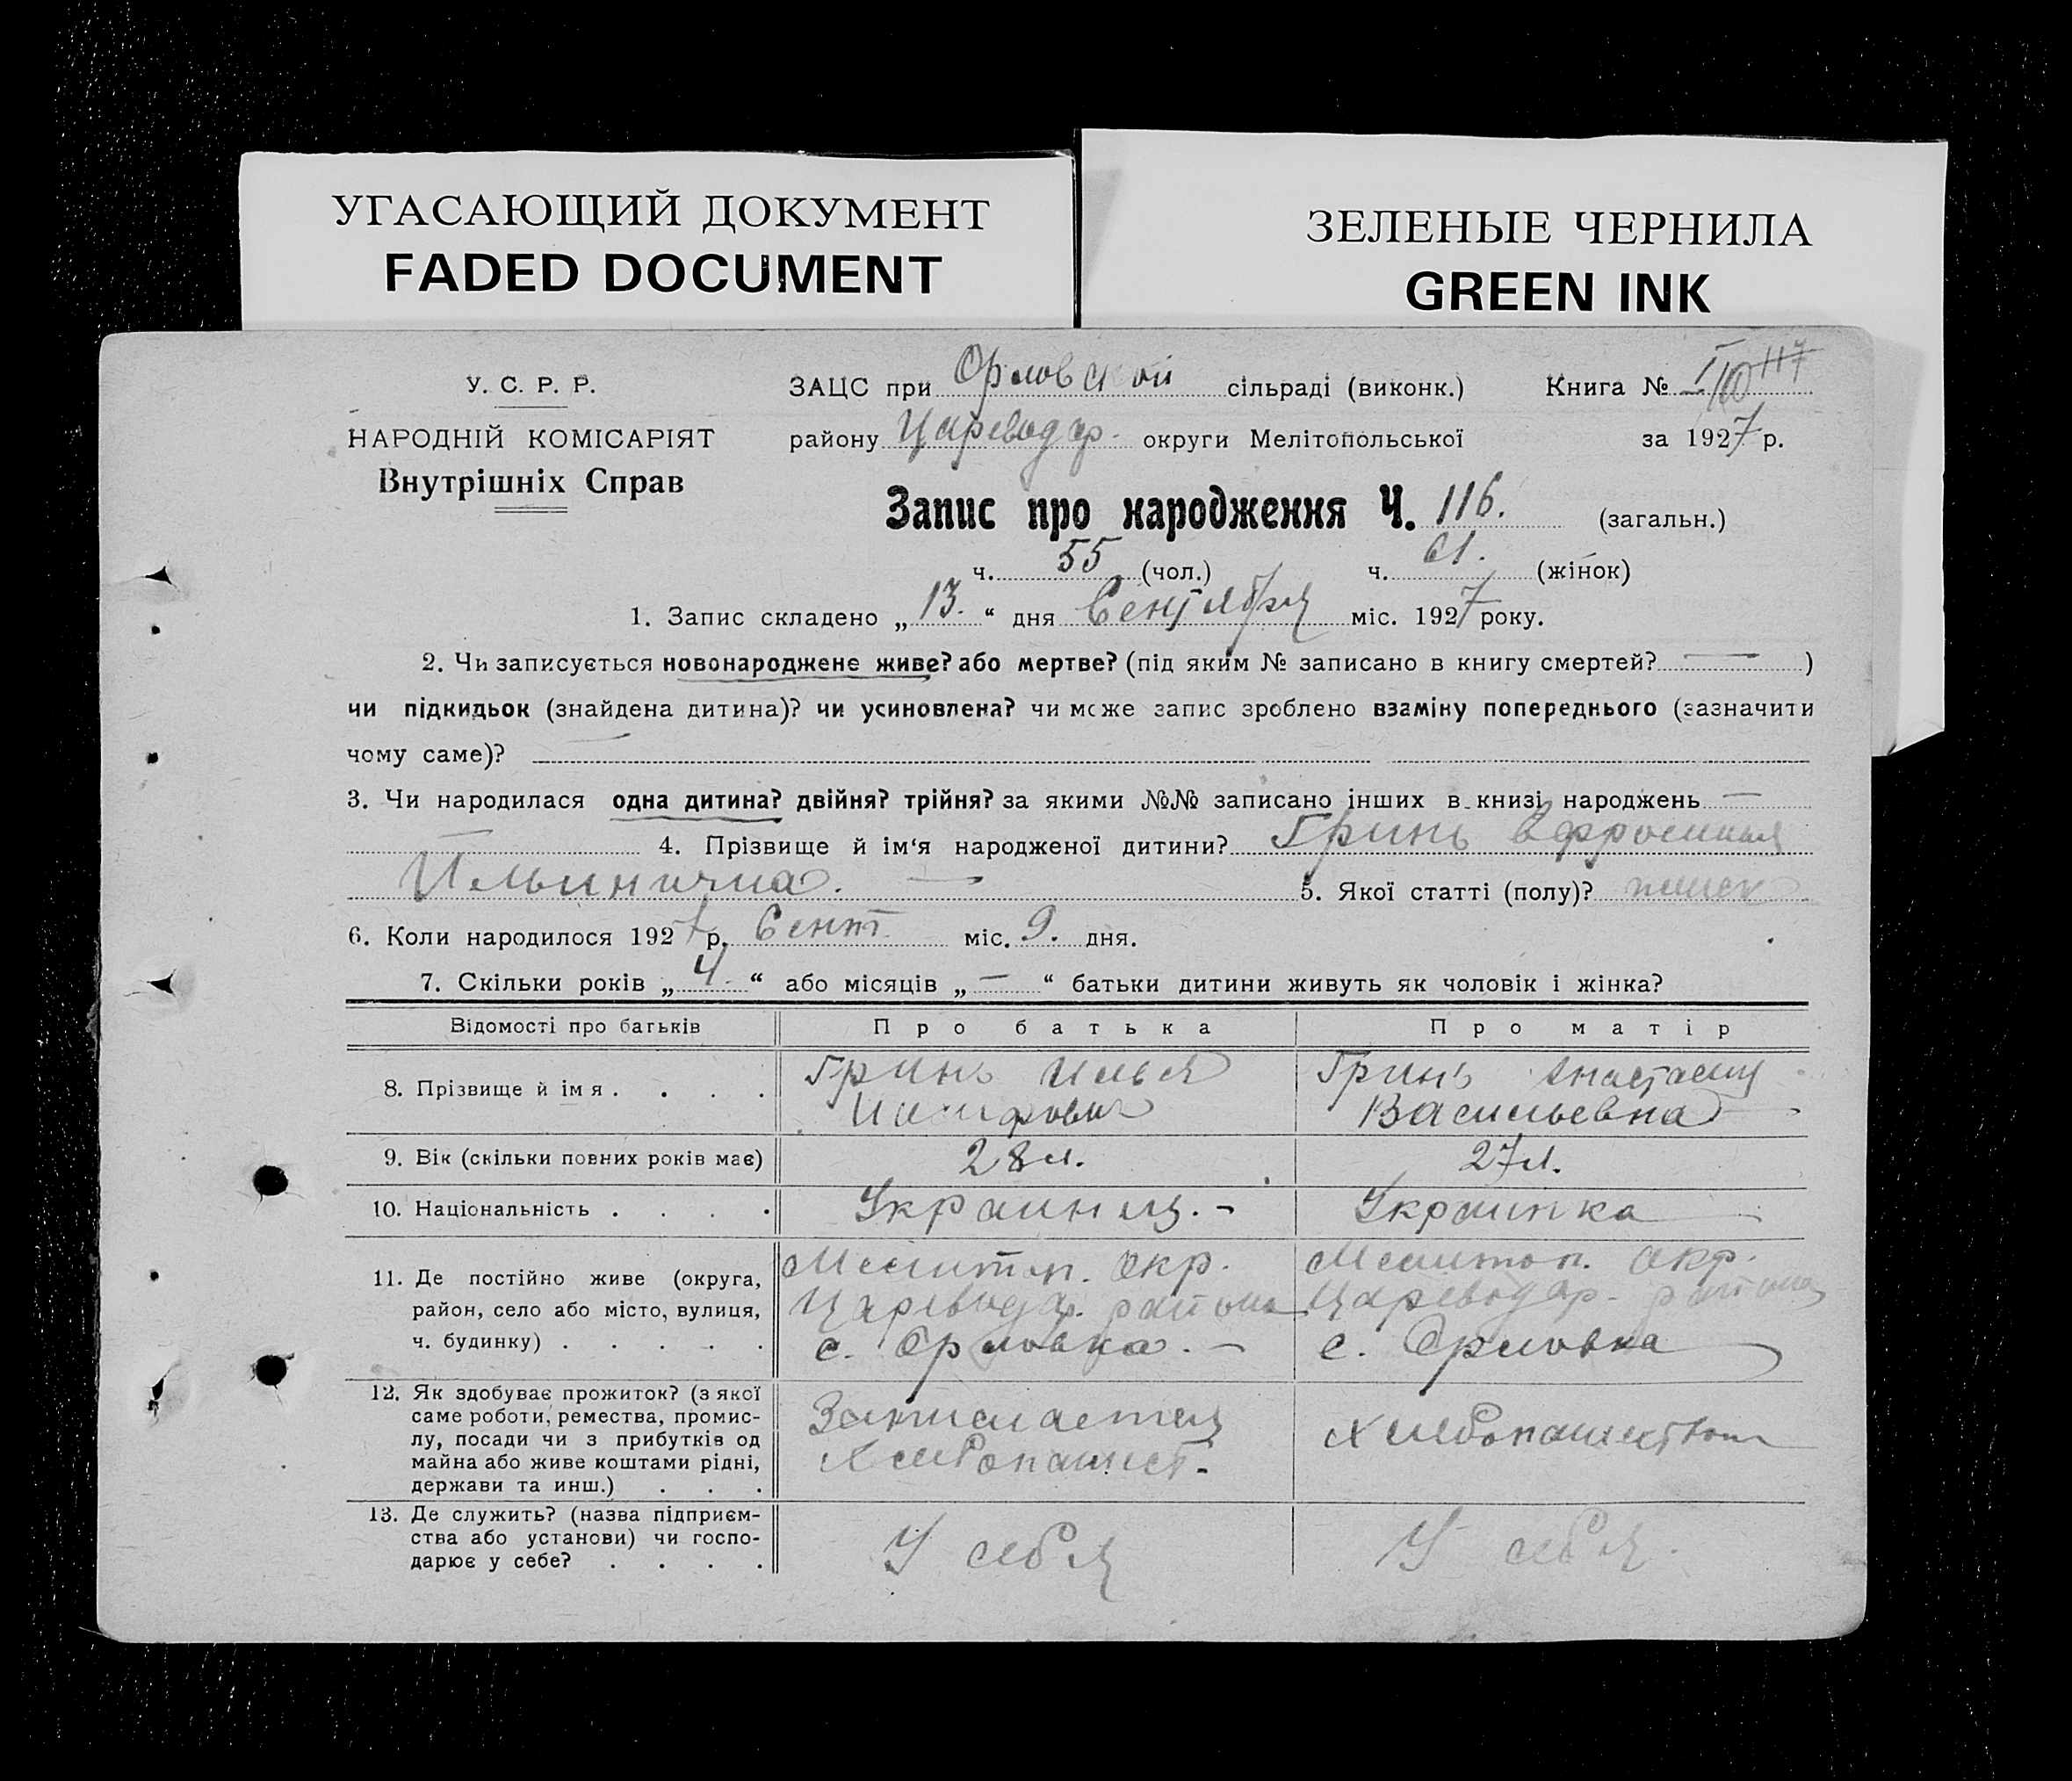 УГАСАЮЩИЙ ДОКУМЕНТ
FADED DOCUMENT
ЗЕЛЕНЫЕ ЧЕРНИЛА
GREEN INK
У. С. Р. Р.
НАРОДНІЙ КОМІСАРІЯТ
Внутрішніх Справ
ЗАЦС при Орловской сільраді (виконк.) Книга №
району Цареводар. округи Мелітопольської за 1927 р.
Запис про народження Ч. 116. (загальн.)
ч. 55 (чол.) ч. 61. (жінок)
1. Запис складено „13.“ дня Сентября міс. 1927 року.
2. Чи записується новонароджене живе? або мертве? (під яким № записано в книгу смертей? — )
чи підкидьок (знайдена дитина)? чи усиновлена? чи може запис зроблено взаміну попереднього (зазначити
чому саме)? —
3. Чи народилася одна дитина? двійня? трійня? за якими №№ записано інших в книзі народжень —
— 4. Прізвище й ім‘я народженої дитини? Гринь Ефросиния
Ильинична. — 5. Якої статті (полу)? женск
6. Коли народилося 1927 р. Сент міс. 9. дня.
7. Скільки років „4.“ або місяців „—“ батьки дитини живуть як чоловік і жінка?
Відомості про батьків Про батька Про матір
8. Прізвище й імя . . . . Гринь Илья Гринь Анастасия
Васильевна
9. Вік (скільки повних років має) 28 л. 27 л.
10. Національність . . . . Украинец. - Украинка
11. Де постійно живе (округа, Мелитоп. Окр. Мелитоп. Окр.
район, село або місто, вулиця, Цареводар. района Цареводар. района
ч. будинку) . . . . . с. Орловка. - с. Орловка
12. Як здобуває прожиток? (з якої
саме роботи, ремества, промис-
лу, посади чи з прибутків од
майна або живе коштами рідні,
держави та инш.) . . .
Занимается
Хлебопашест. Хлебопашеством
13. Де служить? (назва підприєм-
ства або установи) чи госпо-
дарює у себе? . . . .
У себя У себя.